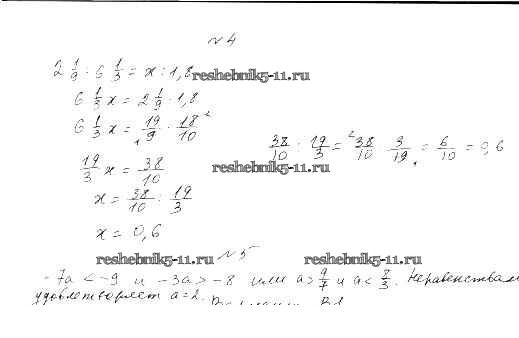 №4
2 1/9 : 6 1/3 = x : 1,8
reshebnik5-11.ru
6 1/3 x = 2 1/9 · 1,8
6 1/3 x = 19/9 · 18/10
38/10 : 19/3 = 38/10 · 3/19 = 6/10 = 0,6
reshebnik5-11.ru
19/3 x = 38/10
x = 38/10 : 19/3
x = 0,6
№5
reshebnik5-11.ru reshebnik5-11.ru
-7a < -9 и -3a > -8 или a > 9/7 и a < 8/3. Неравенствам
удовлетворяет a = 2.